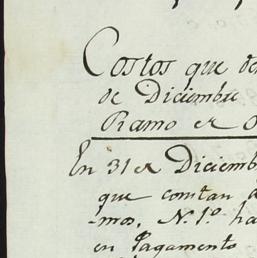 Costos que de
de Diciembre
Ramo de
En 31 de Diciemb
que constan a
mos, N.º 1.º ha
en Pagamento